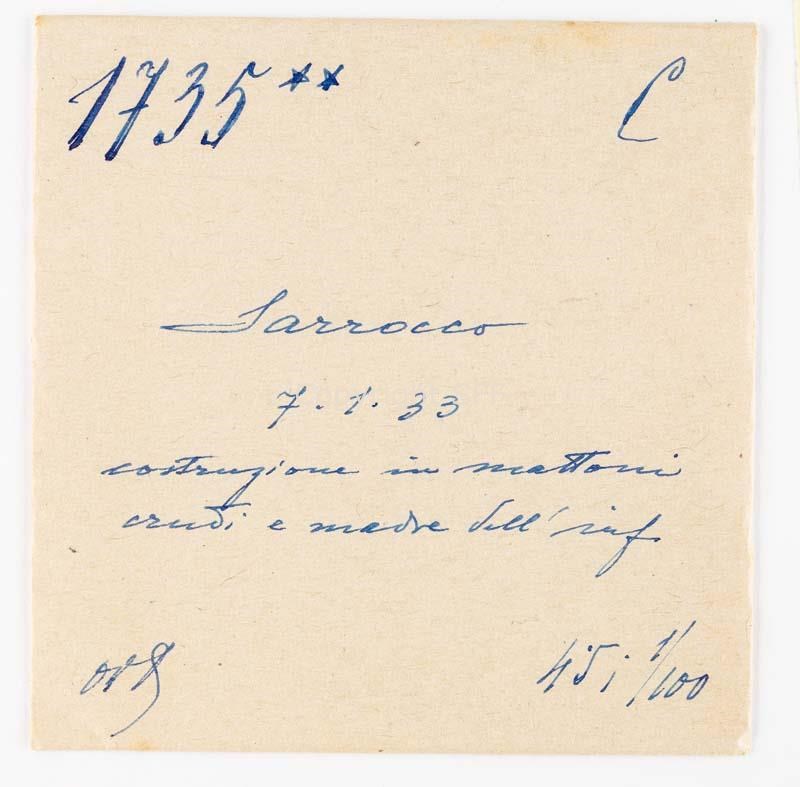 1735** C
Sarrocco
7.1.33
costruzione in mattoni
crudi e madre dell'inf.
45; 1/100